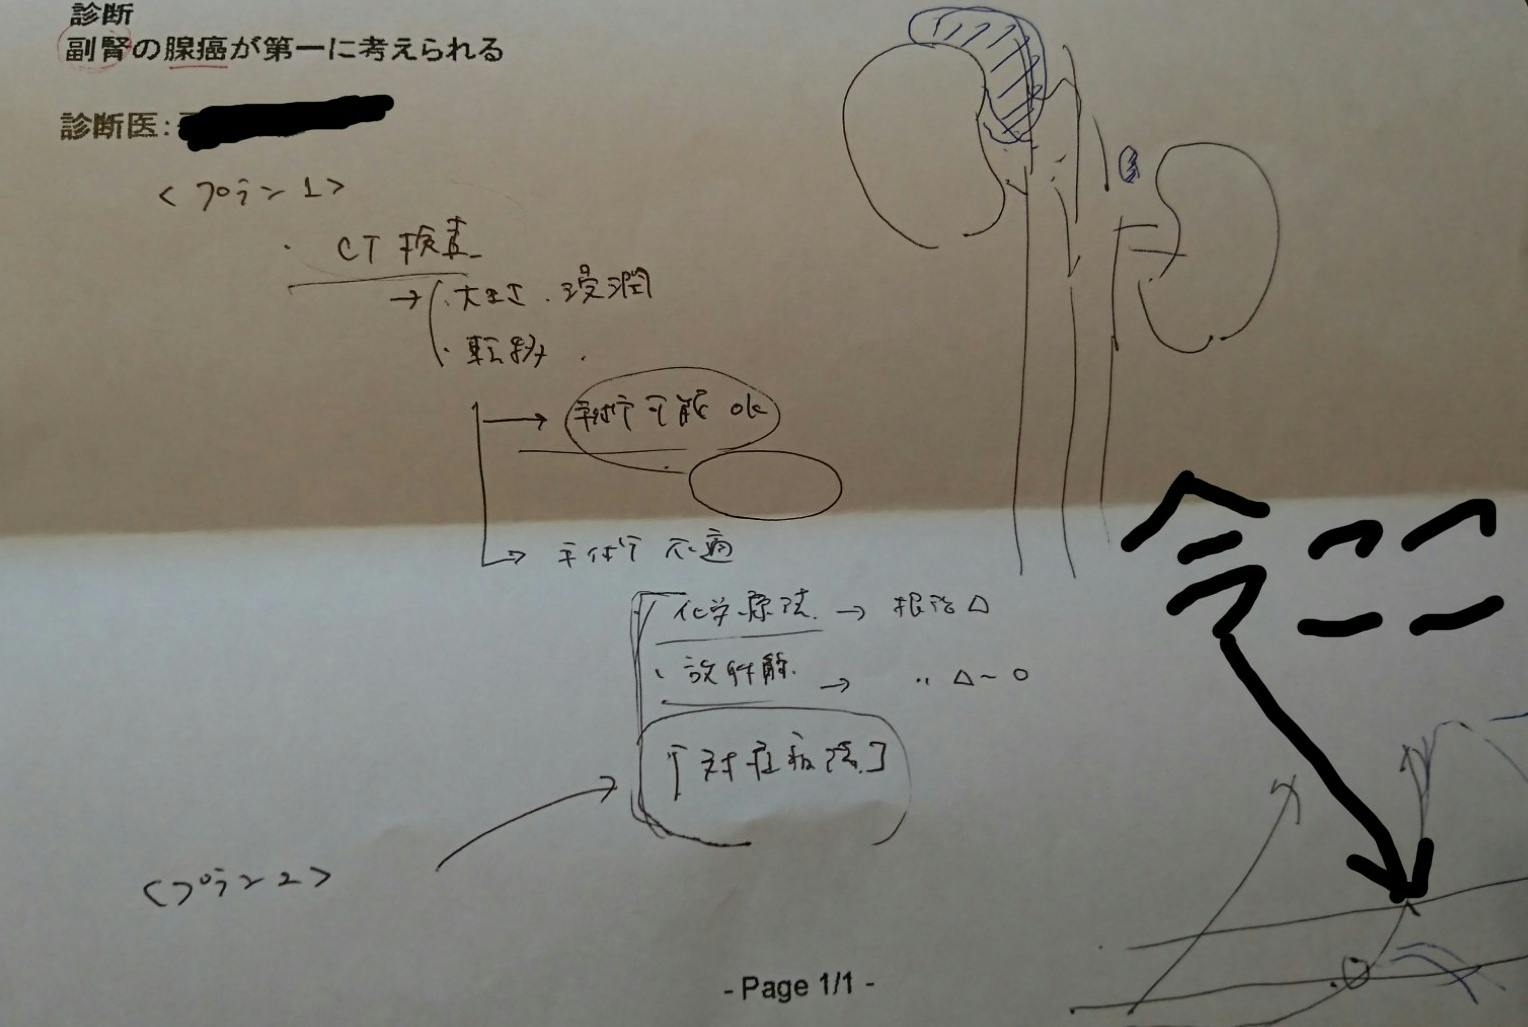 診断
副腎の腺癌が第一に考えられる
診断医:
<プラン1>
・CT検査
→・大きさ・浸潤
・転移
→手術可能 ok
→手術不適
化学療法 → 根治△
・放射線 → 〃 △~○
「対症療法」
<プラン2>
今ココ
- Page 1/1 -